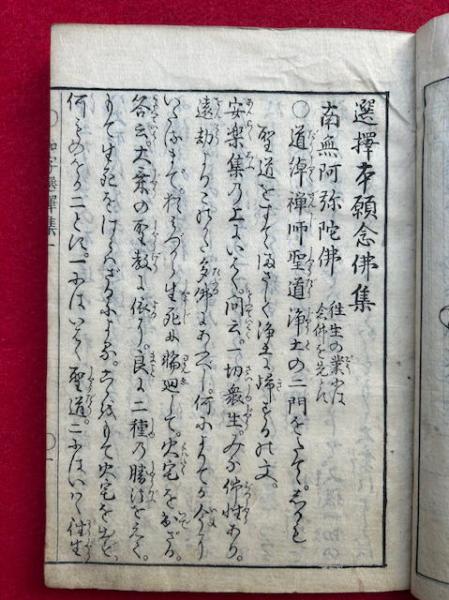 選擇本願念佛集
南無阿弥陀佛 往生の業には
念佛を先とす
〇道綽禅師聖道浄土の二門をたてゝしかも
聖道をすてゝまさしく浄土に帰するの文
安楽集の上にいはく。問云。一切衆生。みな佛性あり。
遠劫よりこのかた多佛にあふべし。何によりてか今に
いたるまで。なをみづから生死に輪廻して。火宅をいでざる。
答云。大乗の聖教に依に。良に二種の勝法をえて。
もて生死をはらはざるによる。こゝをもて火宅を出ず。
何ものをか二とする。一にはいはく聖道。二にはいはく往生